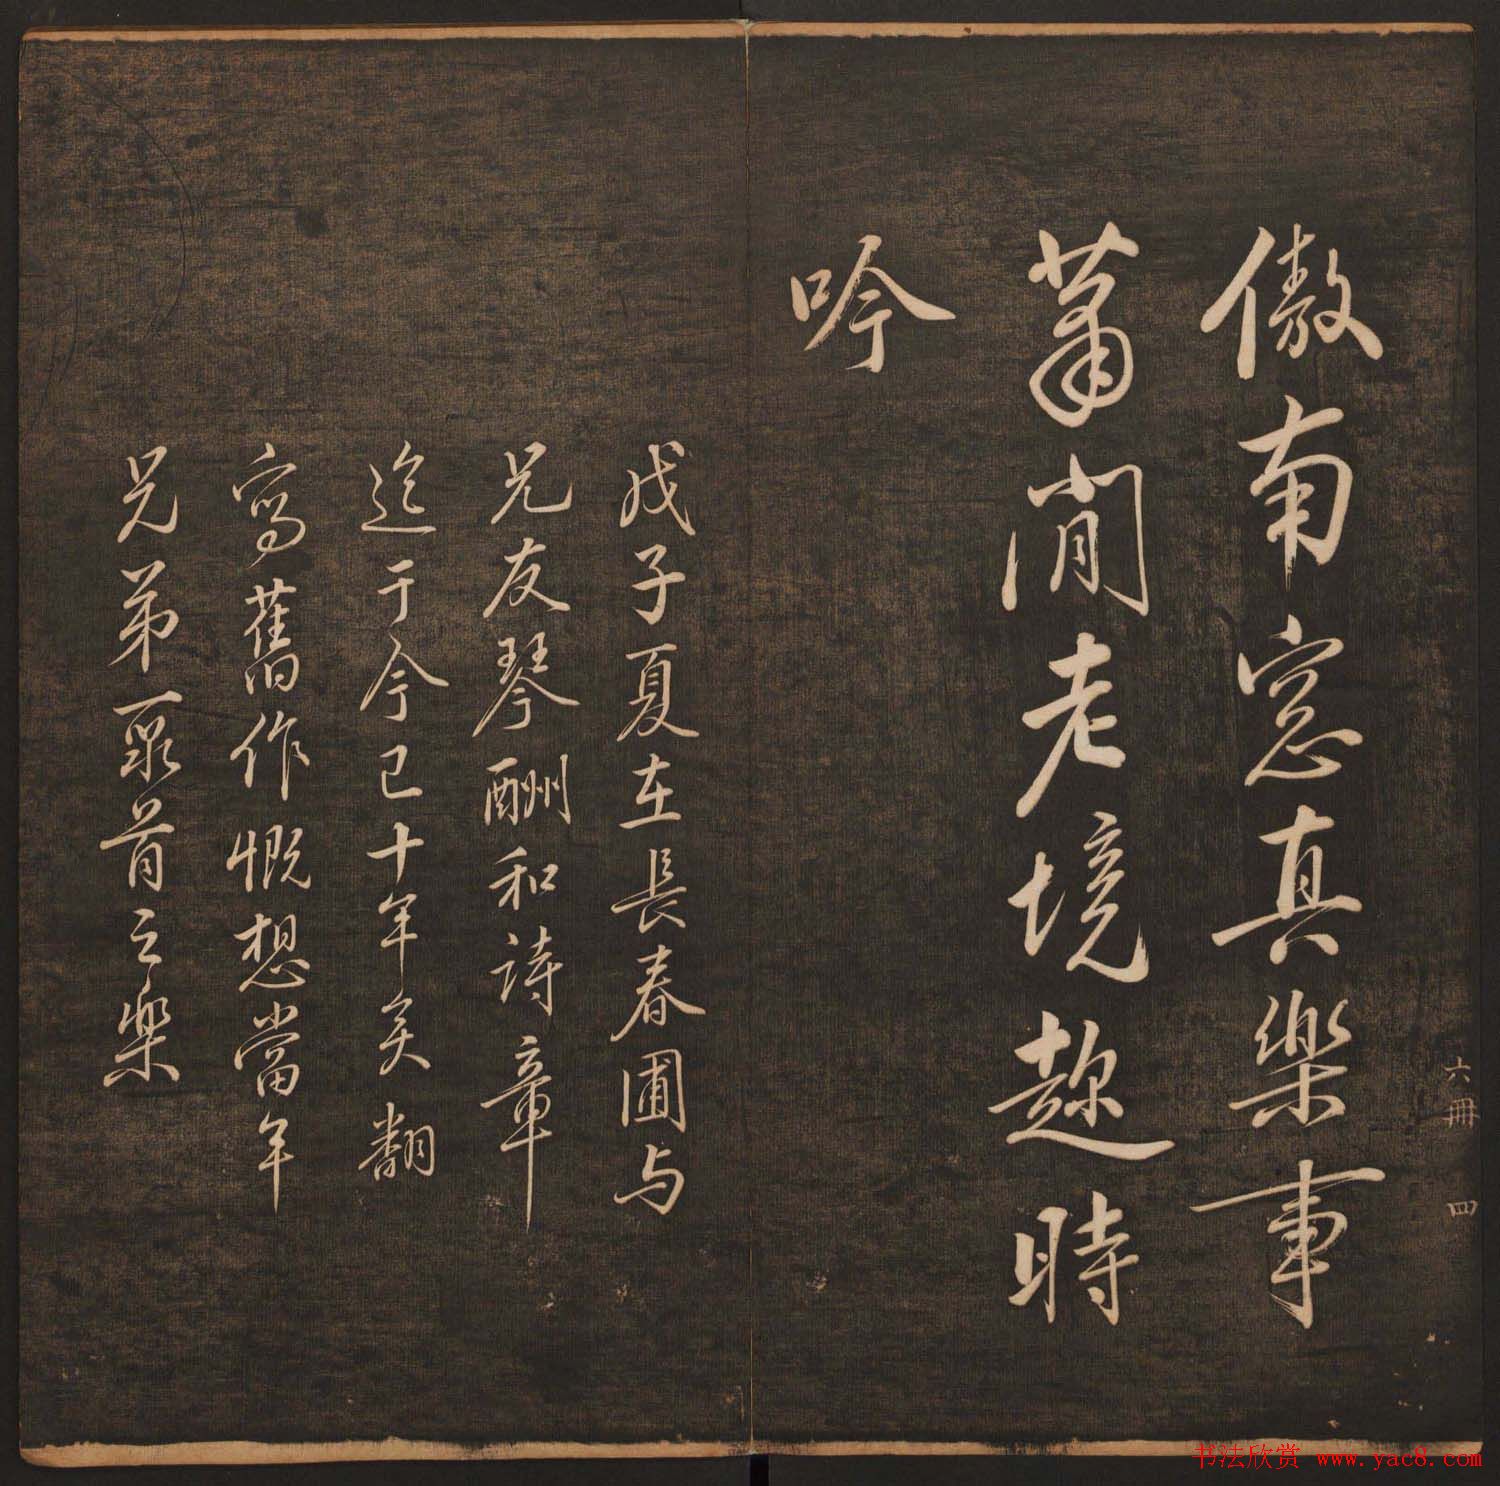 傲南窓真樂事
蕭閒老境趂時
吟
戊子夏在長春圃与
兄友琴酬和詩章
迄于今已十年矣翻
寫舊作慨想當年
兄弟聚首之樂
六冊 四
书法欣赏 www.yac8.com